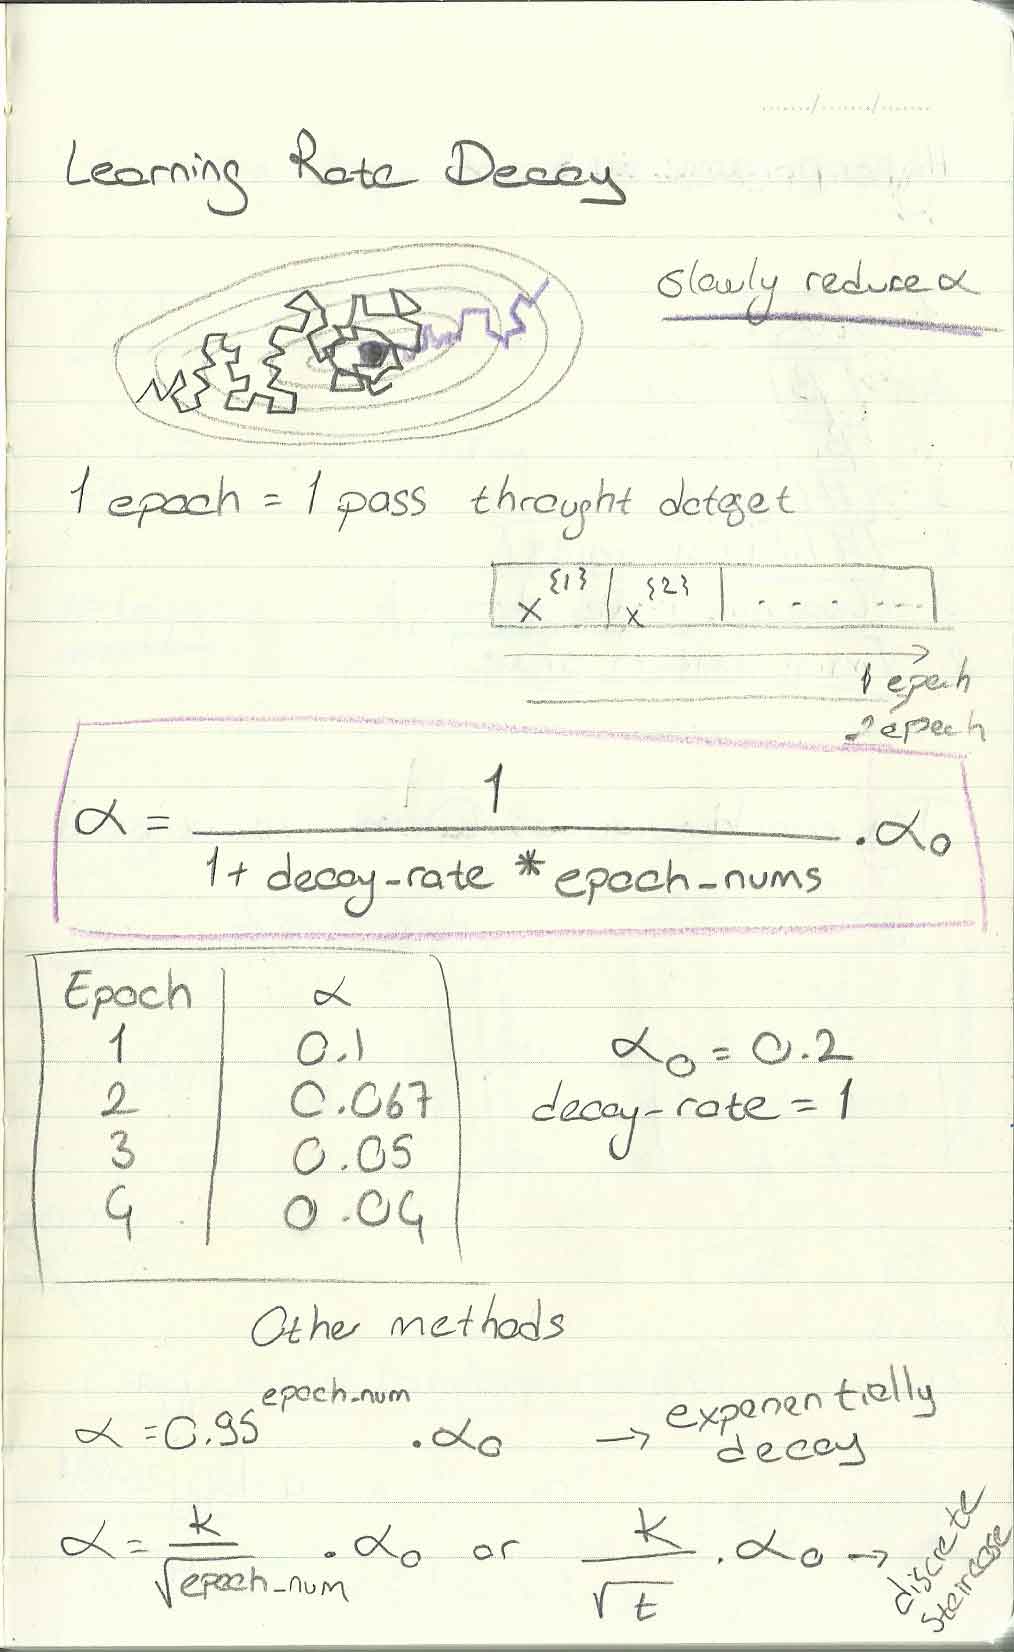 Learning Rate Decay
slowly reduce α
1 epoch = 1 pass throught dataset
x^{1} x^{2} . - . . ...
1 epoch
2 epoch
α = 1 / (1 + decay-rate * epoch-nums) . α₀
Epoch α
1 0.1
2 0.067
3 0.05
4 0.04
α₀ = 0.2
decay-rate = 1
Other methods
α = 0.95^epoch-num . α₀ → exponentially decay
α = k / √epoch-num . α₀ or k / √t . α₀ → discrete staircase